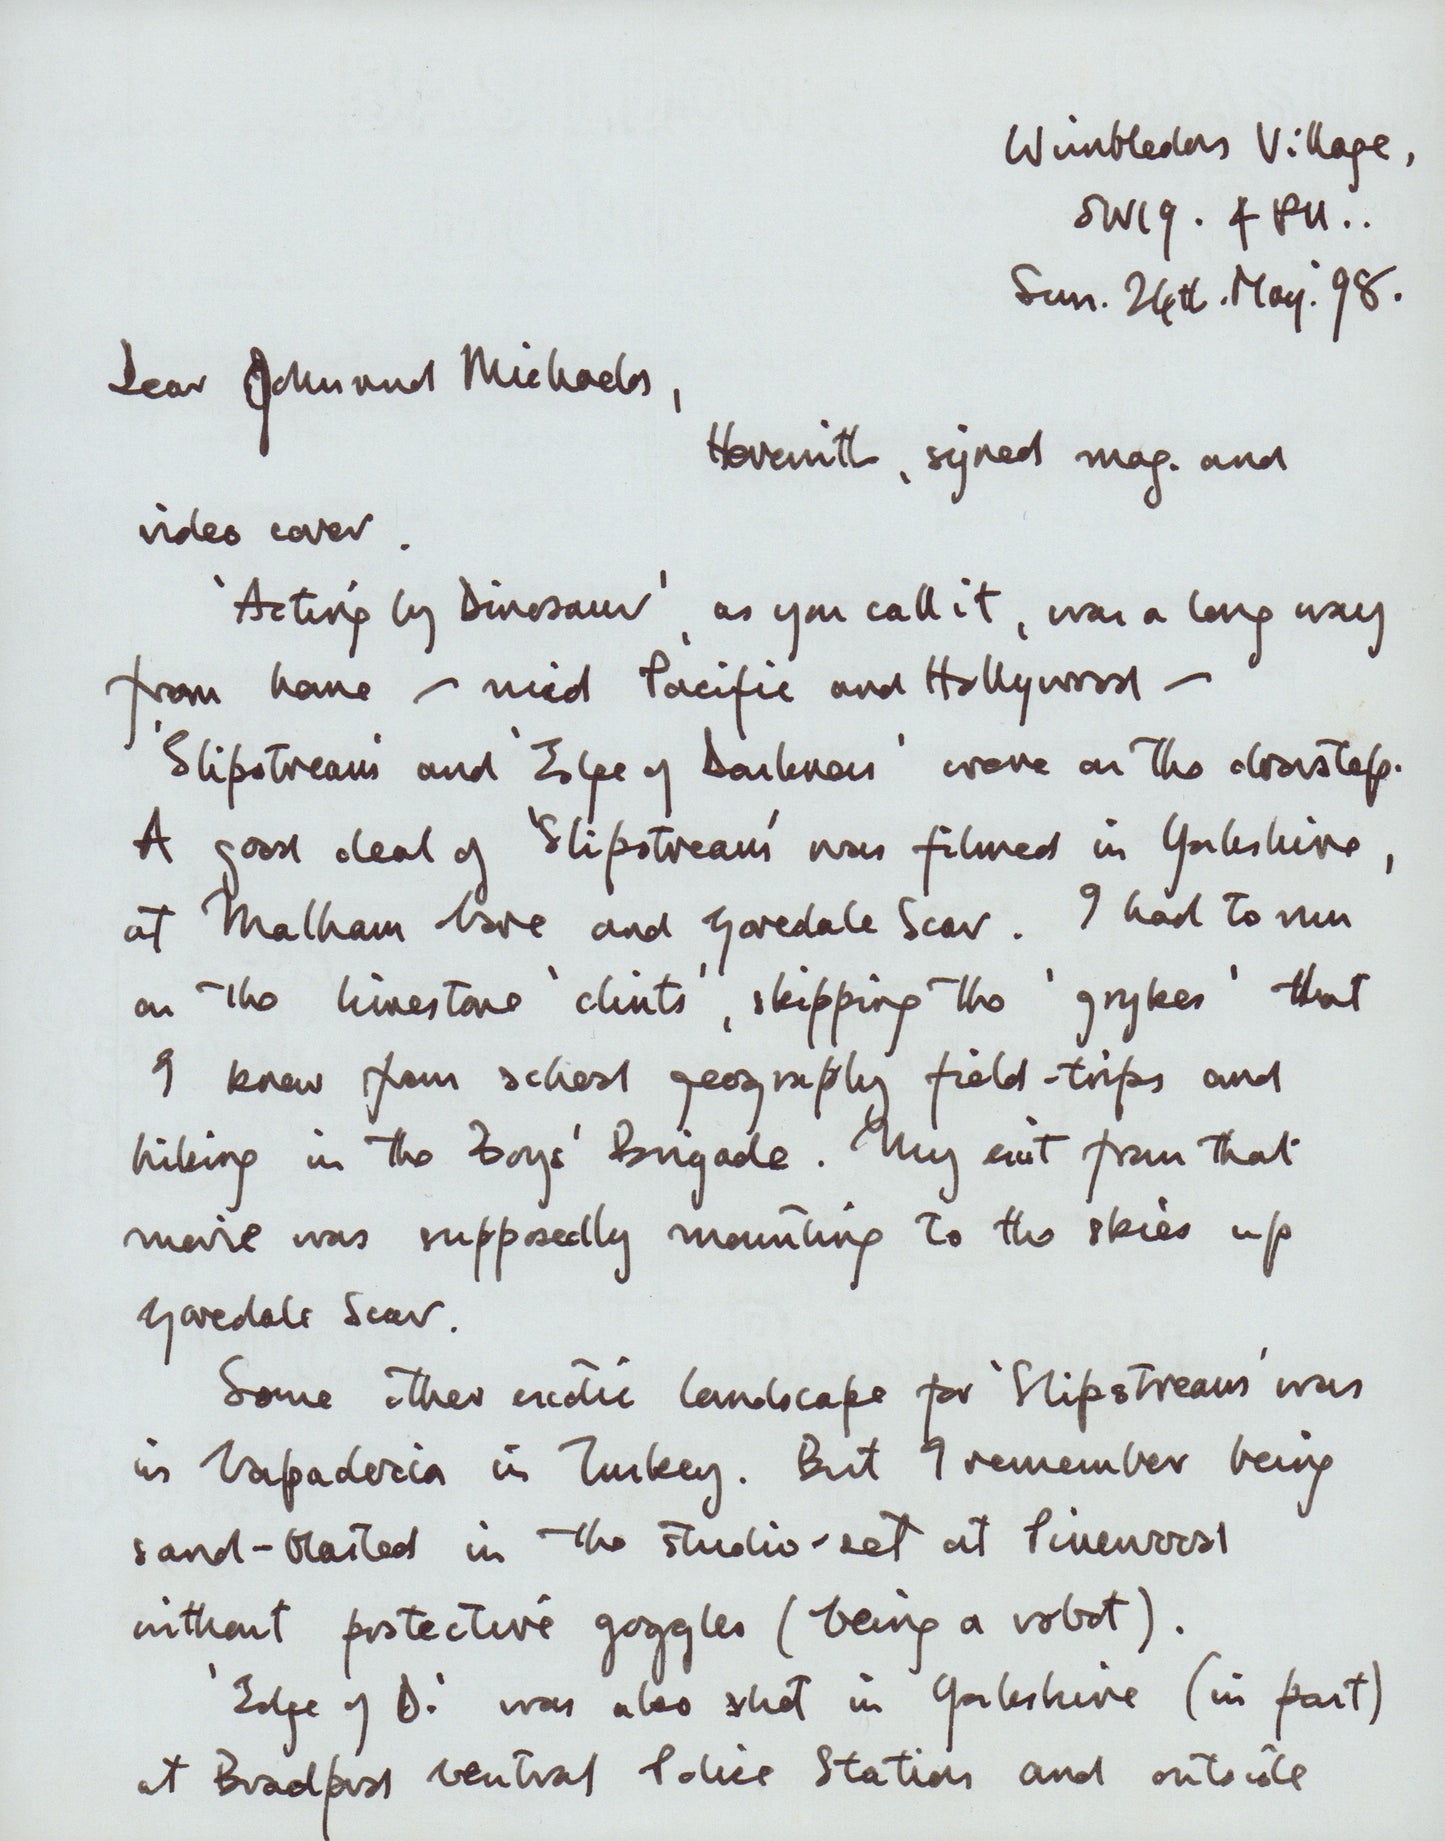 Wimbledon Village,
SW19. 4
Sun. 24th. May. '98.
Dear John and Michaela,
Herewith, signed mag. and
video cover.
'Acting by Dinosaur', as you call it, was a long way
from home – mid Pacific and Hollywood –
'Slipstream' and 'Edge of Darkness' were on the doorstep.
A good deal of 'Slipstream' was filmed in Yorkshire,
at Malham Cove and Yoredale Scar. I had to run
on the limestone 'clints', skipping the 'grykes' that
I knew from school geography field-trips and
hiking in the Boys' Brigade. My exit from that
movie was supposedly mounting to the skies up
Yoredale Scar.
Some other exotic landscape for 'Slipstream' was
in Capadocia in Turkey. But I remember being
sand-blasted in the studio-set at Pinewood
without protective goggles (being a robot).
'Edge of D.' was also shot in Yorkshire (in part)
at Bradford Central Police Station and outside